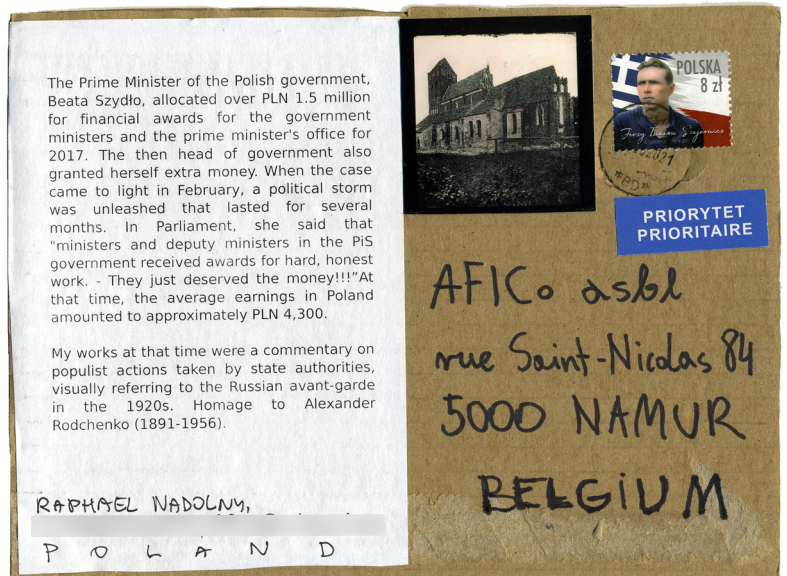 The Prime Minister of the Polish government,
Beata Szydło, allocated over PLN 1.5 million
for financial awards for the government
ministers and the prime minister's office for
2017. The then head of government also
granted herself extra money. When the case
came to light in February, a political storm
was unleashed that lasted for several
months. In Parliament, she said that
"ministers and deputy ministers in the PiS
government received awards for hard, honest
work. - They just deserved the money!!!”At
that time, the average earnings in Poland
amounted to approximately PLN 4,300.
My works at that time were a commentary on
populist actions taken by state authorities,
visually referring to the Russian avant-garde
in the 1920s. Homage to Alexander
Rodchenko (1891-1956).
RAPHAEL NADOLNY,
POLAND
POLSKA
8 zł
PRIORYTET
PRIORITAIRE
AFICo asbl
rue Saint-Nicolas 84
5000 NAMUR
BELGIUM